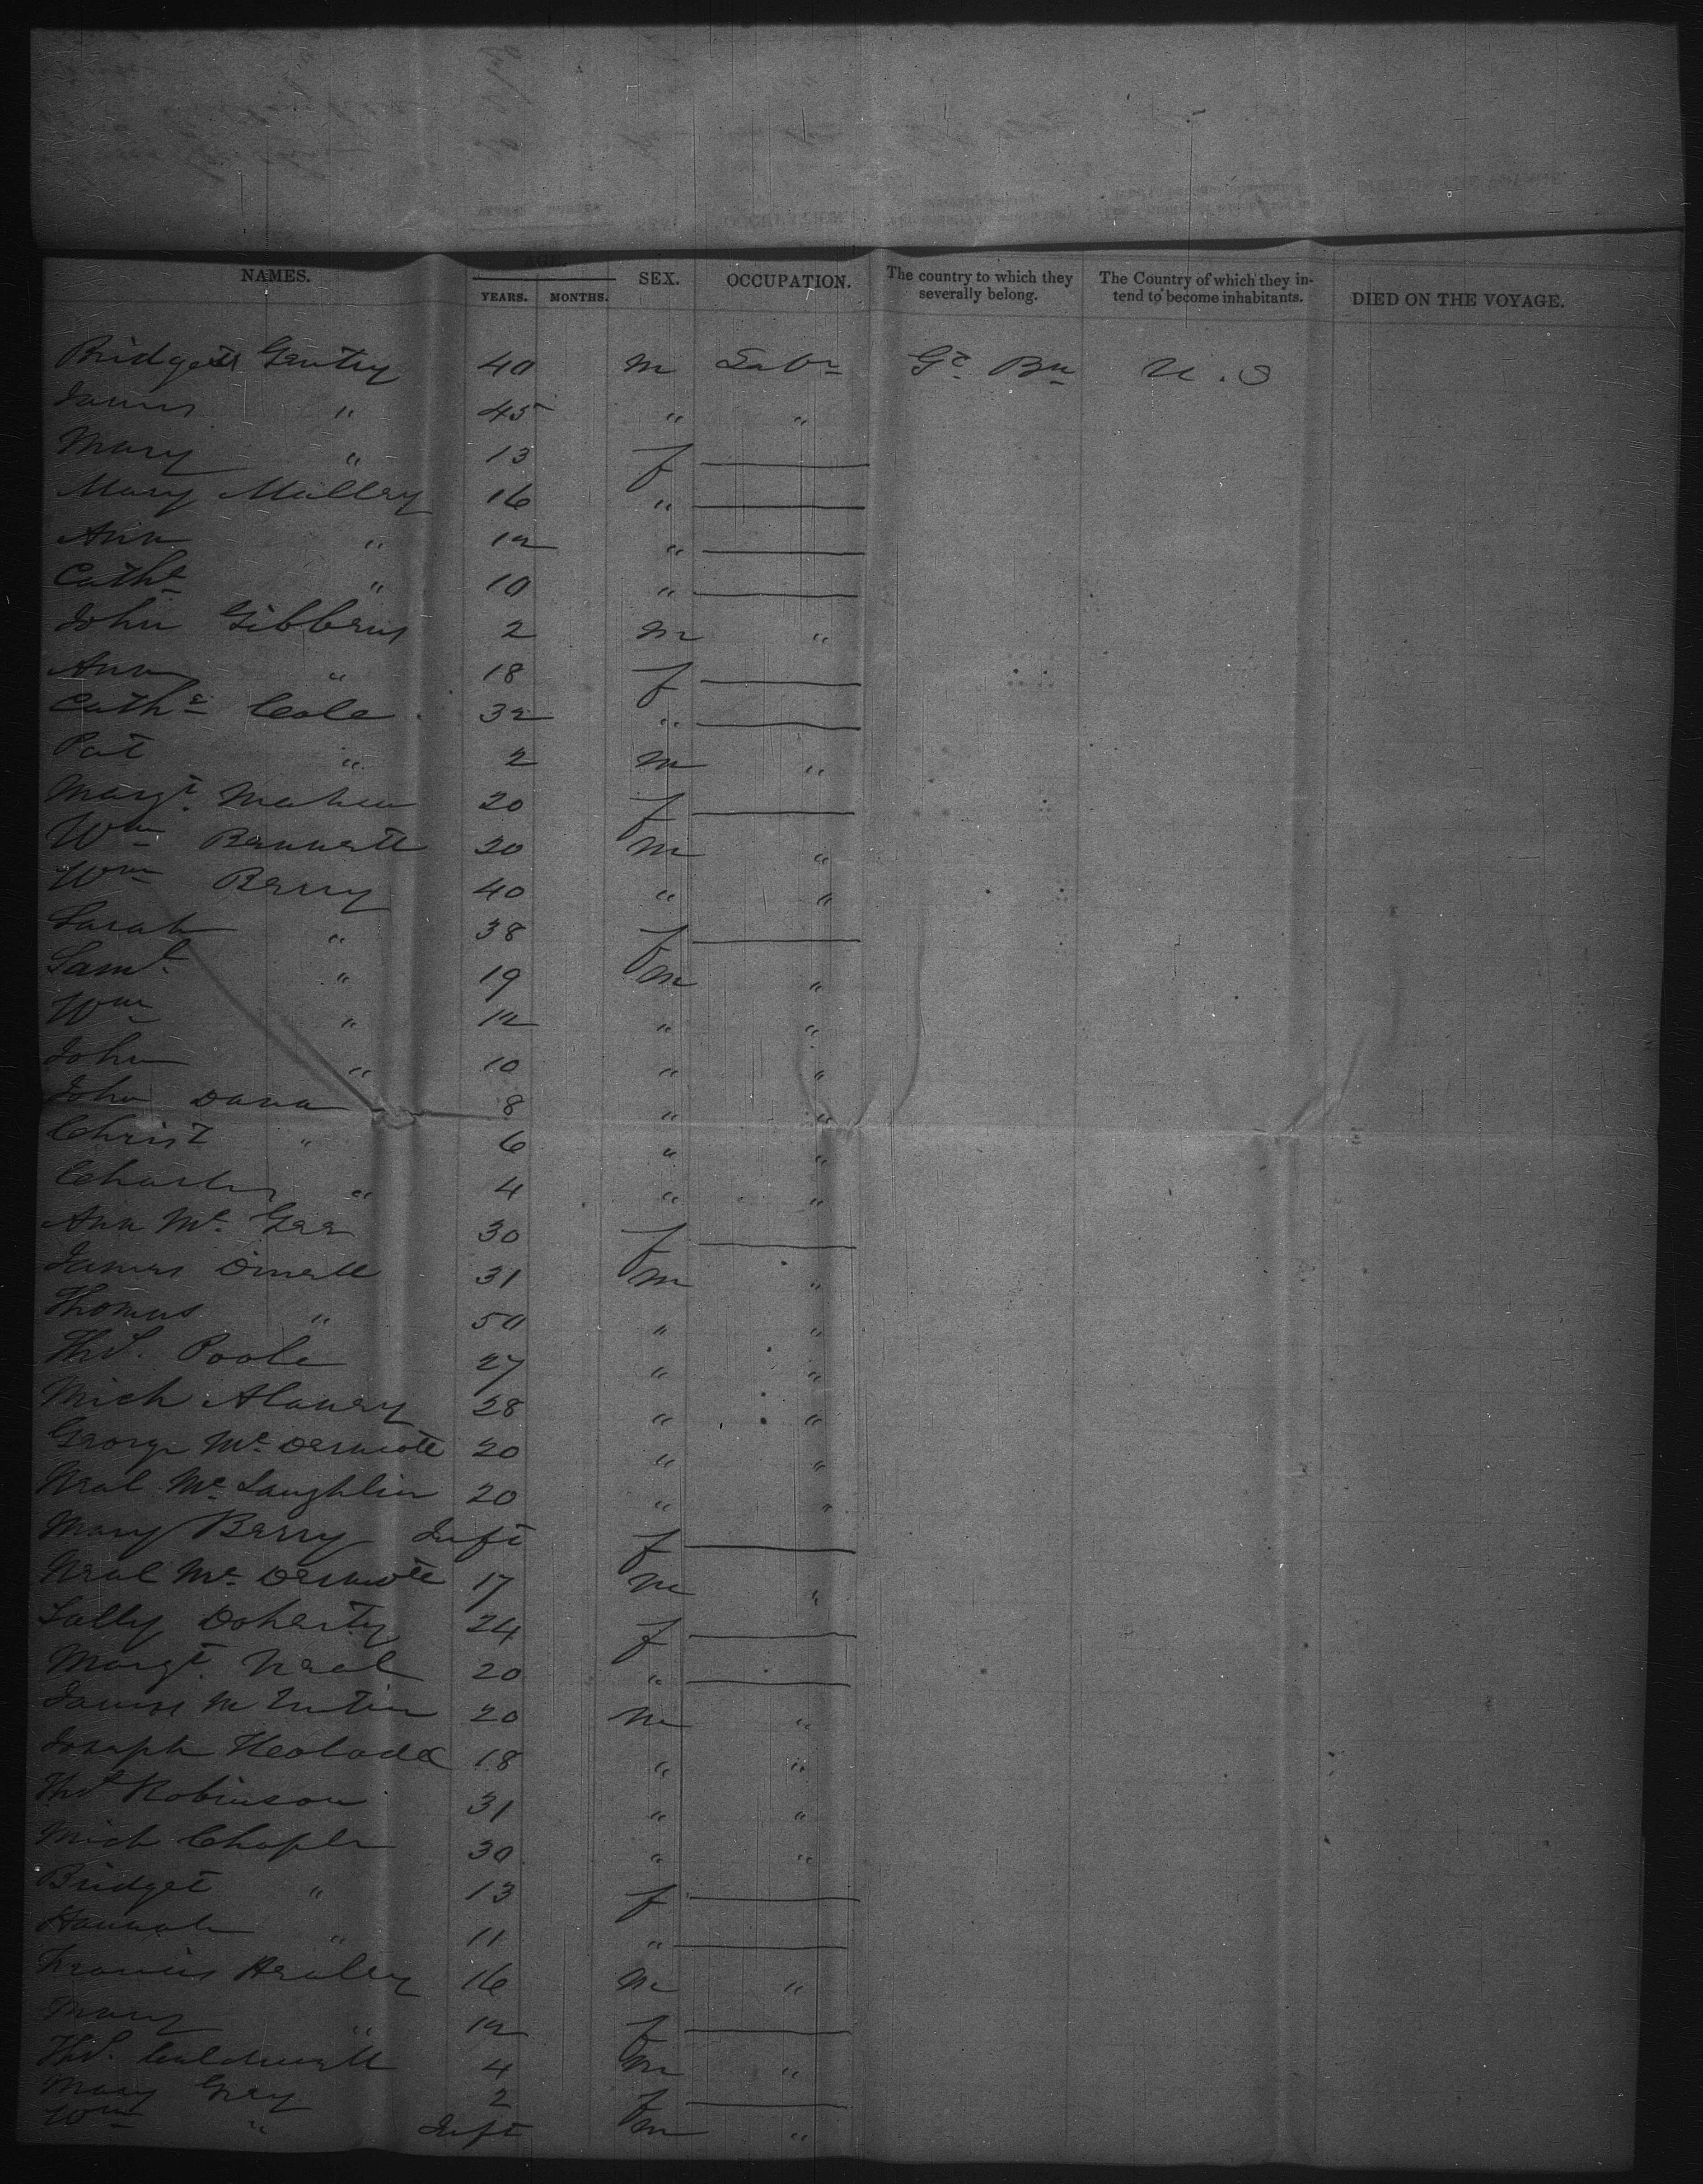 NAMES. AGE. SEX. OCCUPATION. The country to which they severally belong. The Country of which they intend to become inhabitants. DIED ON THE VOYAGE.
YEARS. MONTHS.
Bridget Gentry 40 m Labr Gt. Bn U.S
James " 45 " "
Mary " 13 f
Mary Malley 16 "
Ann " 12 "
Cathe " 10 "
John Gibbens 2 m "
Ann " 18 f
Cathe Cole 32 "
Pat " 2 m "
Margt. Mahen 20 f
Wm Bennett 20 m "
Wm Berry 40 " "
Sarah " 38 f
Saml. " 19 m "
Wm " 12 " "
John " 10 " "
John Dana 8 " "
Christ " 6 " "
Charles " 4 " "
Ann Mc. Gee 30 f
James 31 m "
Thomas " 50 " "
Thos. Poole 27 " "
Mich 28 " "
George Mc. Dermott 20 " "
Neal Mc. Laughlin 20 " "
Mary Berry Inft f
Neal Mc. Dermott 17 m "
Sally Doherty 24 f
Margt. Neal 20 "
James 20 m "
Joseph 18 " "
Thos Robinson 31 " "
Mich Chaple 30 " "
Bridget " 13 f
Hannah " 11 "
Francis Healey 16 m "
Mary " 12 f
Thos. Caldwell 4 m "
Mary Grey 2 f
Wm " Inft m "